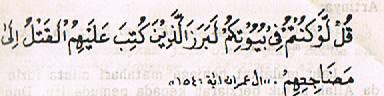 قُلْ لَوْ كُنْتُمْ فِى بُيُوْتِكُمْ لَبَرَزَ الَّذِيْنَ كُتِبَ عَلَيْهِمُ الْقَتْلُ اِلَى
مَضَاجِعِهِمْ ... ال عمران اية ١٥٤